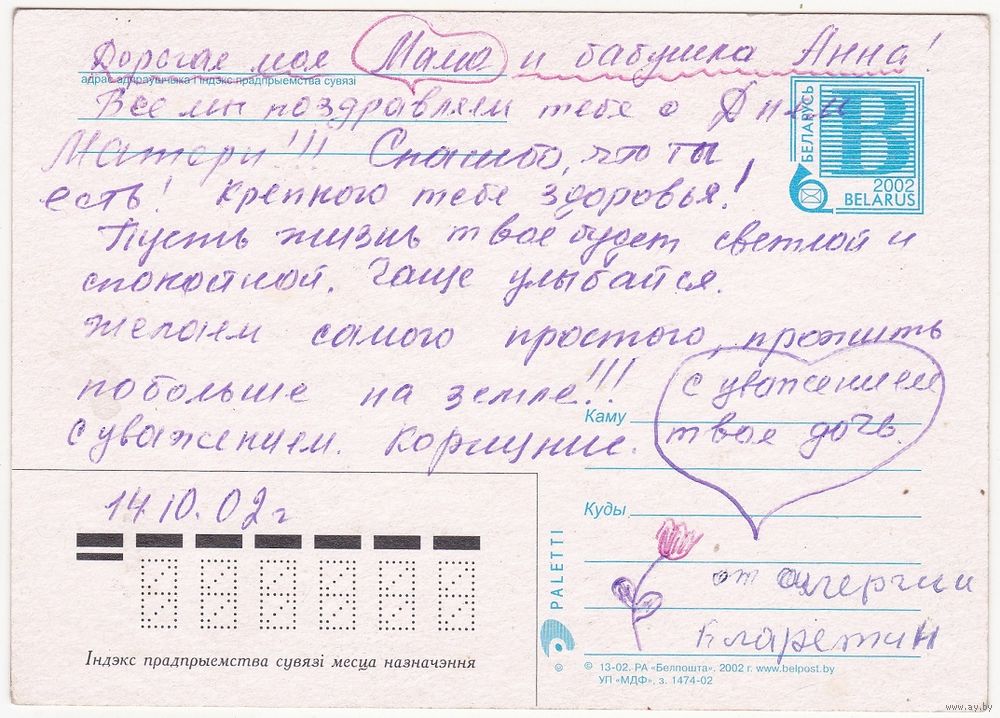 Дорогая моя Мама и бабушка Анна!
адрас адпраўшчыка і індэкс прадпрыемства сувязі
Все мы поздравляем тебе с Днем
Матери!!! Спасибо, что ты
есть! Крепкого тебе здоровья!
Пусть жизнь твоя будет светлой и
спокойной. Чаще улыбайся.
Желаем самого простого, прожить
побольше на земле!!!
с уважением.
с уважением
твоя дочь.
БЕЛАРУСЬ
B
2002
BELARUS
Каму
Куды
14.10.02 г
PALETTI
от
Індэкс прадпрыемства сувязі месца назначэння
© 13-02. РА "Белпошта", 2002 г. www.belpost.by
УП «МДФ», з. 1474-02
©
www.ay.by